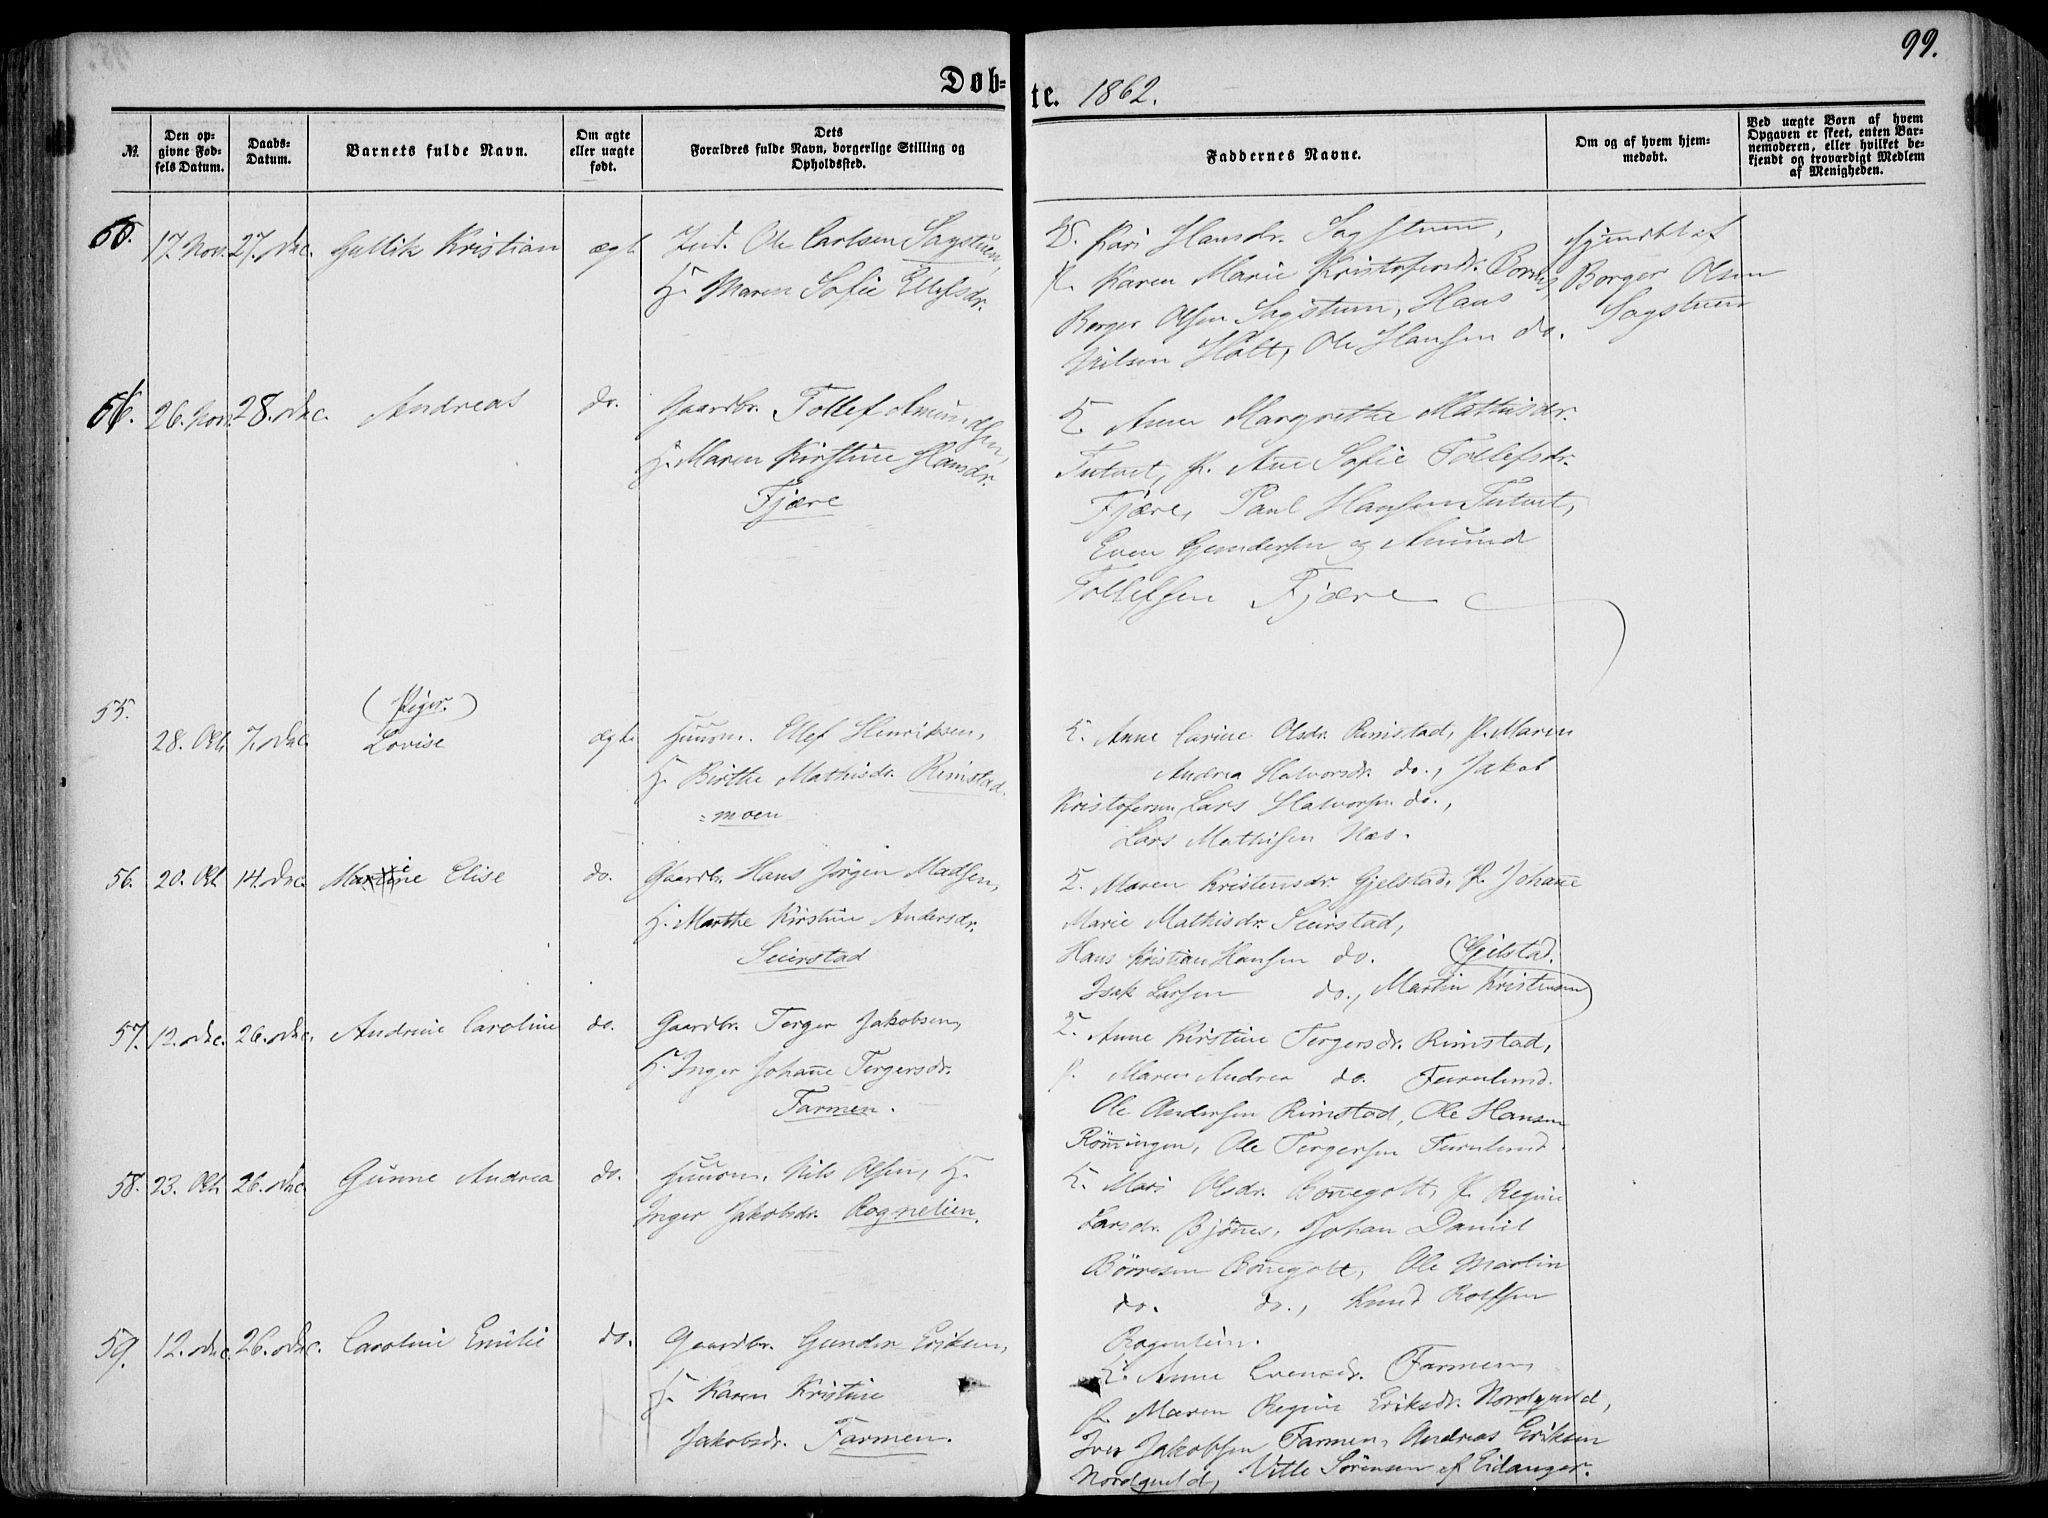 99.
Døb-
te. 1862.
№.
Den op-
givne Fød-
sels Datum.
Daabs-
Datum.
Barnets fulde Navn.
Om ægte
eller uægte
født.
Dets
Forældres fulde Navn, borgerlige Stilling og
Opholdssted.
Faddernes Navne.
Om og af hvem hjem-
medøbt.
Ved uægte Børn af hvem
Opgaven er skeet, enten Bar-
nemoderen, eller hvilket be-
kjendt og troværdigt Medlem
af Menigheden.
17. Nov. 27. Dec. Gullik Kristian ægt. Ind. Ole Carlsen Sagstuen,
H. Maren Sofie Ellefsdr.
Kari Hansdr. Sagstuen,
P. Karen Marie Kristofersdr.
Borger Olsen Sagstuen, Hans
Nilsen Holt, Ole Hansen do.
hjemdbt af
Borger Olsen
Sagstuen
26. Nov. 28. Dec. Andreas do. Gaardbr. Tollef Amundsen,
H. Maren Kirstine Hansdr.
Fjære
K. Anne Margrethe Mathisdr.
Tutvet, P. Anne Sofie Tollefsdr.
Fjære, Paul Hansen Tutvet,
Even Gundersen og Amund
Tollefsen Fjære
(Piger.)
55.
28. Okt. 7. Dec. Lovise ægte Huusm. Ellef Henriksen,
H. Birthe Mathisdr. Rimstad
=moen
K. Anne Carine Olsdr. Rimstad, P. Maren
Andrea Halvorsdr. do., Jakob
Kristofersen, Lars Halvorsen do.,
Lars Mathisen Næs.
56. 20. Okt. 14. Dec. Marie Elise do. Gaardbr. Hans Jørgen Madsen,
H. Marthe Kirstine Andersdr.
Seierstad
K. Maren Kristensdr. Gjelstad, P. Johanne
Marie Mathisdr. Seierstad,
Hans Kristian Hansen do. Gjelstad.
Isak Larsen do., Martin Kristensen
57. 12. Dec. 26. Dec. Andrine Caroline do. Gaardbr. Terger Jakobsen,
H. Inger Johanne Tergersdr.
Farmen.
K. Anne Kirstine Tergersdr. Rimstad,
P. Maren Andrea do. Furulund.
Ole Andersen Rimstad, Ole Hansen
Rönningen, Ole Tergersen Furulund.
58. 23. Okt. 26. Dec. Gunne Andrea do. Huusm. Nils Olsen, H.
Inger Jakobsdr. Rognelien.
K. Mari Olsdr. Bonnegolt, P. Regine
Larsdr. Bjönnes, Johan Daniel
Börresen Bonnegolt, Ole Martin
do. do., Knud Rolfsen
Rognelien.
59. 12. Dec. 26. Dec. Caroline Emilie do. Gaardbr. Gunder Eriksen,
H. Karen Kristine
Jakobsdr. Farmen.
K. Anne Evensdr. Farmen,
P. Maren Regine Eriksdr. Nordqueld,
Iver Jakobsen Farmen, Andreas Eriksen
Nordqueld, Ville Sørensen af Eidanger.